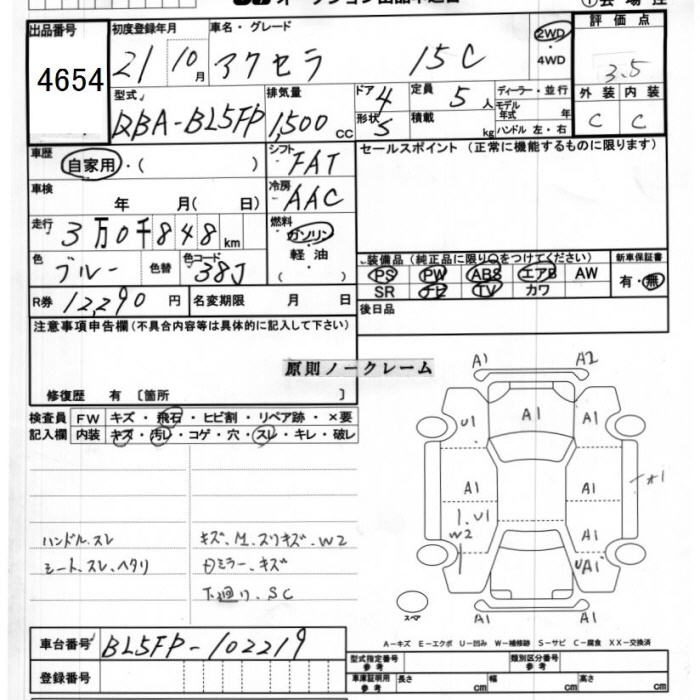 出品番号 初度登録年月 車名・グレード 評価点
4654 21 10月 アクセラ 15C 2WD・4WD 3.5
型式 排気量 ドア 4 定員 5人 ディーラー・並行 外装 内装
DBA-BL5FP 1,500cc 形状 5 積載 kg モデル年式 年 C C
ハンドル 左・右
車歴 自家用・( ) シフト FAT セールスポイント (正常に機能するものに限ります)
車検 年 月( 日) 冷房 AAC
走行 3万0千848km 燃料 ガソリン・軽油 ( )
色 ブルー 色替 色コード 38J 装備品(純正品に限り○をつけてください) 新車保証書
PS PW ABS エアB AW 有・無
SR ナビ TV カワ
R券 12,290円 名変期限 月 日 後日品
注意事項申告欄(不具合内容等は具体的に記入して下さい)
原則ノークレーム
修復歴 有 [箇所 ]
検査員記入欄 FW キズ・飛石・ヒビ割・リペア跡・×要
内装 キズ・汚レ・コゲ・穴・スレ・キレ・破レ
A1 A2
U1 A1 A1
A1 A1
1.U1 W2 A1
UA1
A1 A1
ハンドル.スレ キズ、M.スリキズ.W2
シート.スレ、ヘタリ Dミラー、キズ
下廻り.SC
スペア
A-キズ E-エクボ U-凹み W-補修跡 S-サビ C-腐食 XX-交換済
車台番号 BL5FP-102219
型式指定番号参考 類別区分番号参考
登録番号
車庫証明用参考 長さ cm 幅 cm 高さ cm